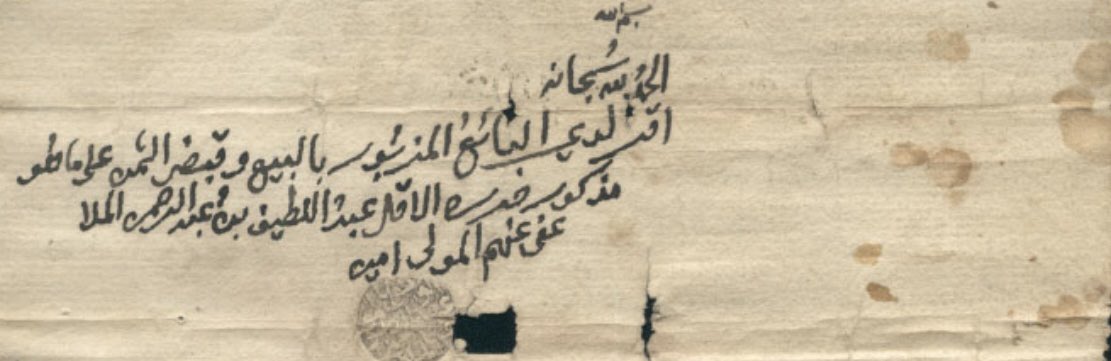 بسم الله
الحمد لله سبحانه
اقر لدي البائع المزبور بالبيع وقبض الثمن على ما هو
مذكور حرره الاقل عبد اللطيف بن عبد الرحمن الملا
عفى عنهم المولى امين